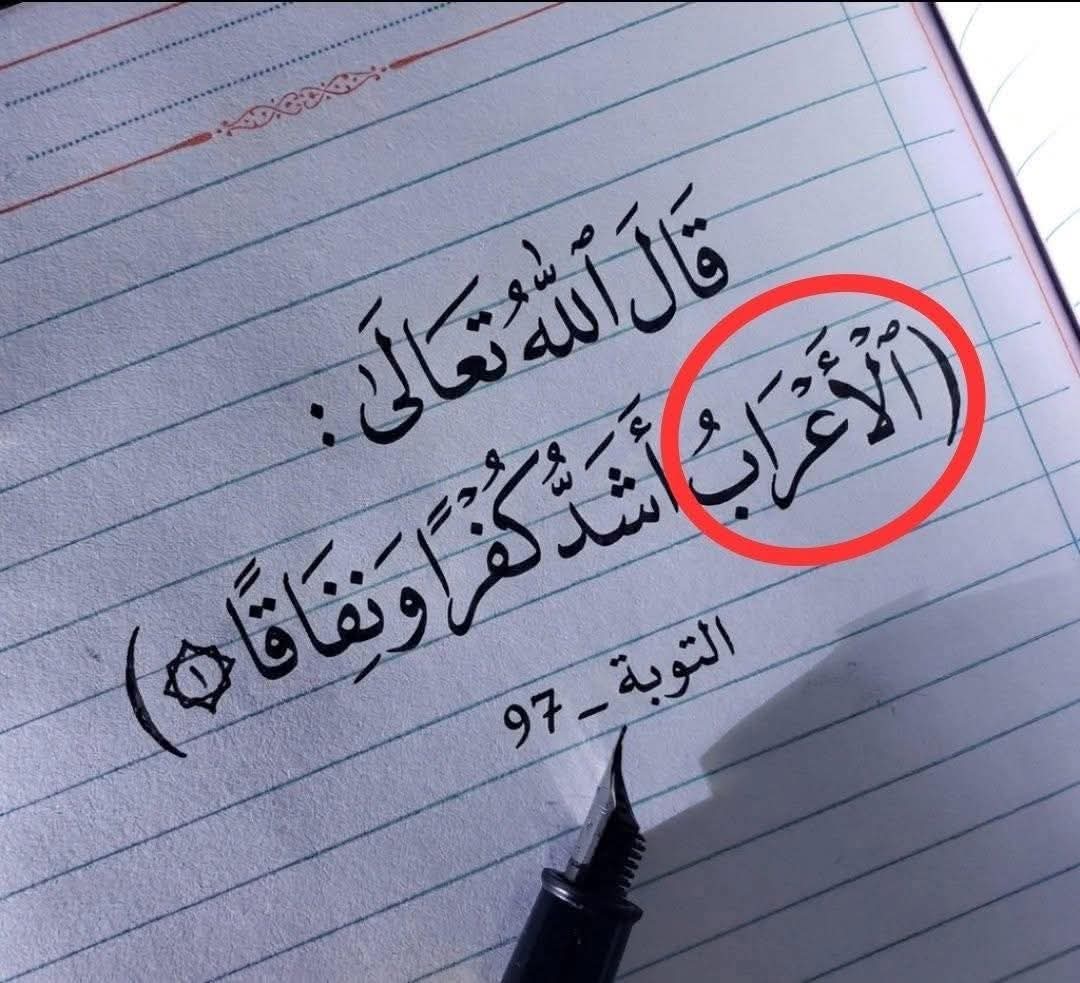 قَالَ ٱللَّهُ تَعَالَىٰ :
(ٱلْأَعْرَابُ أَشَدُّ كُفْرًا وَنِفَاقًا ۝١)
التوبة _ 97